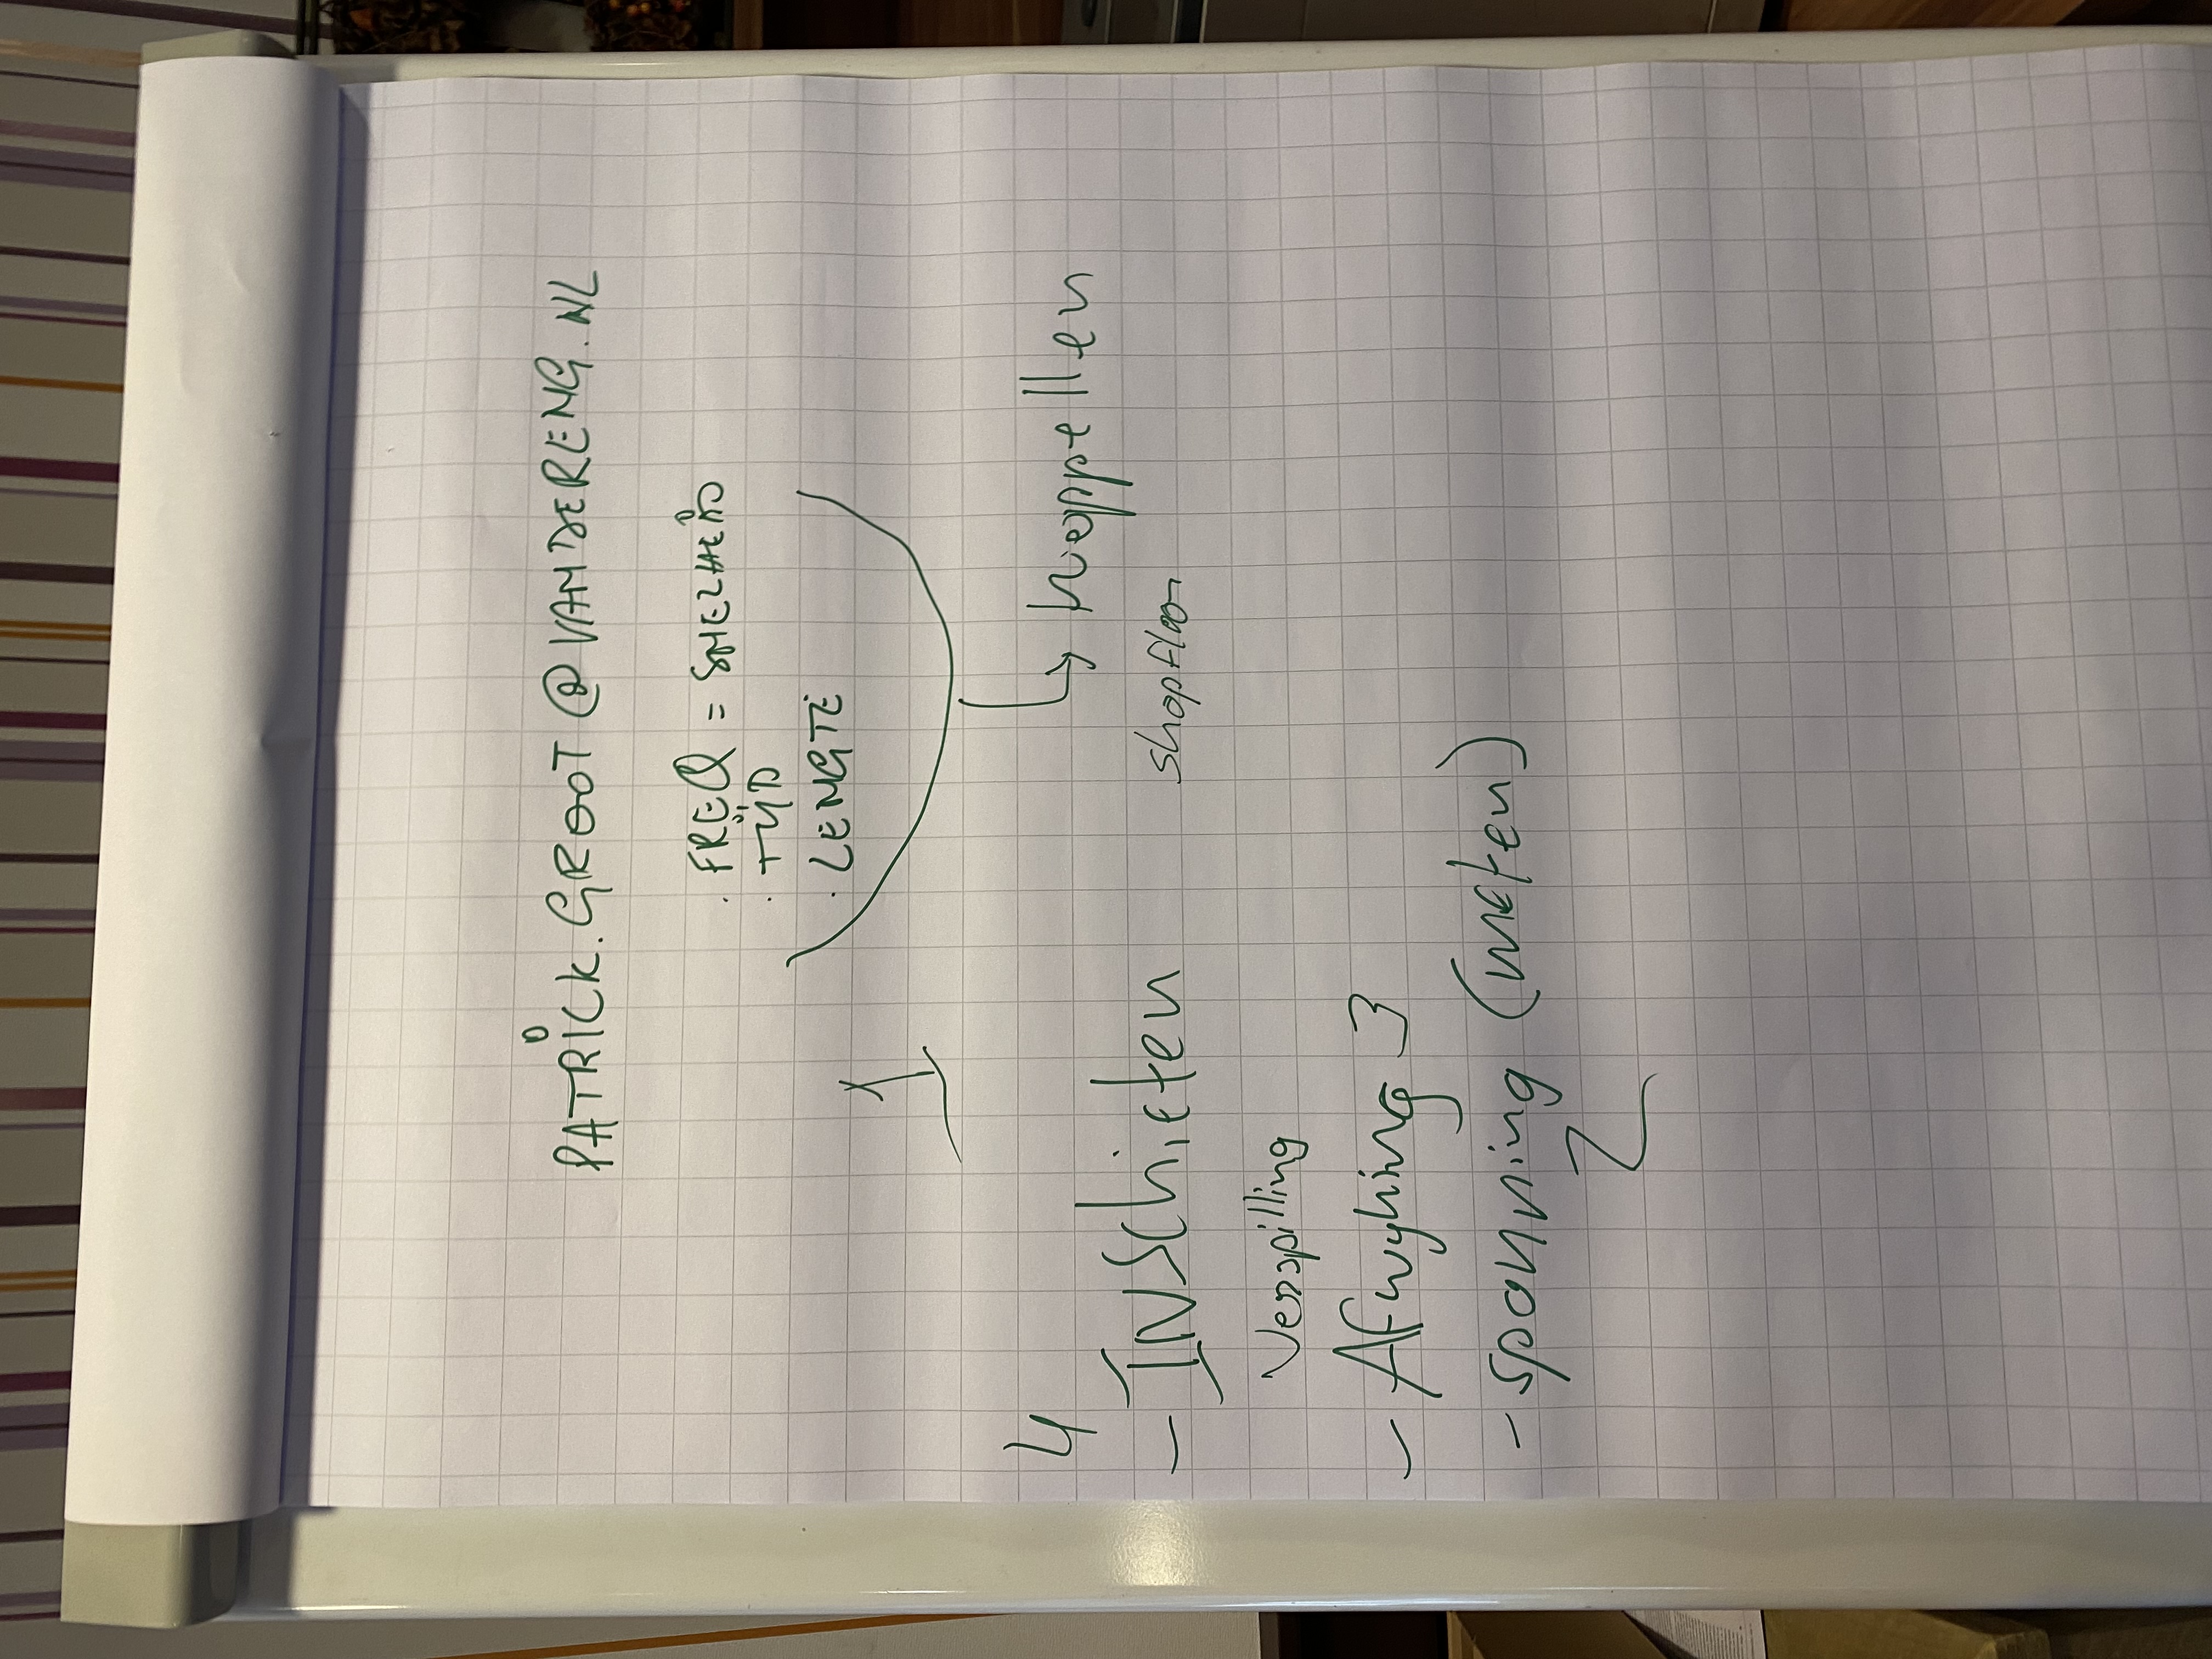 PATRICK.GROOT@VANDERENG.NL
. FREQ = SNELHEID
. TIJD
. LENGTE
1
→ koppellen
4
- INSchieten
shopfloor
Verspilling
- Afwyking 3
- spanning (meten)
2